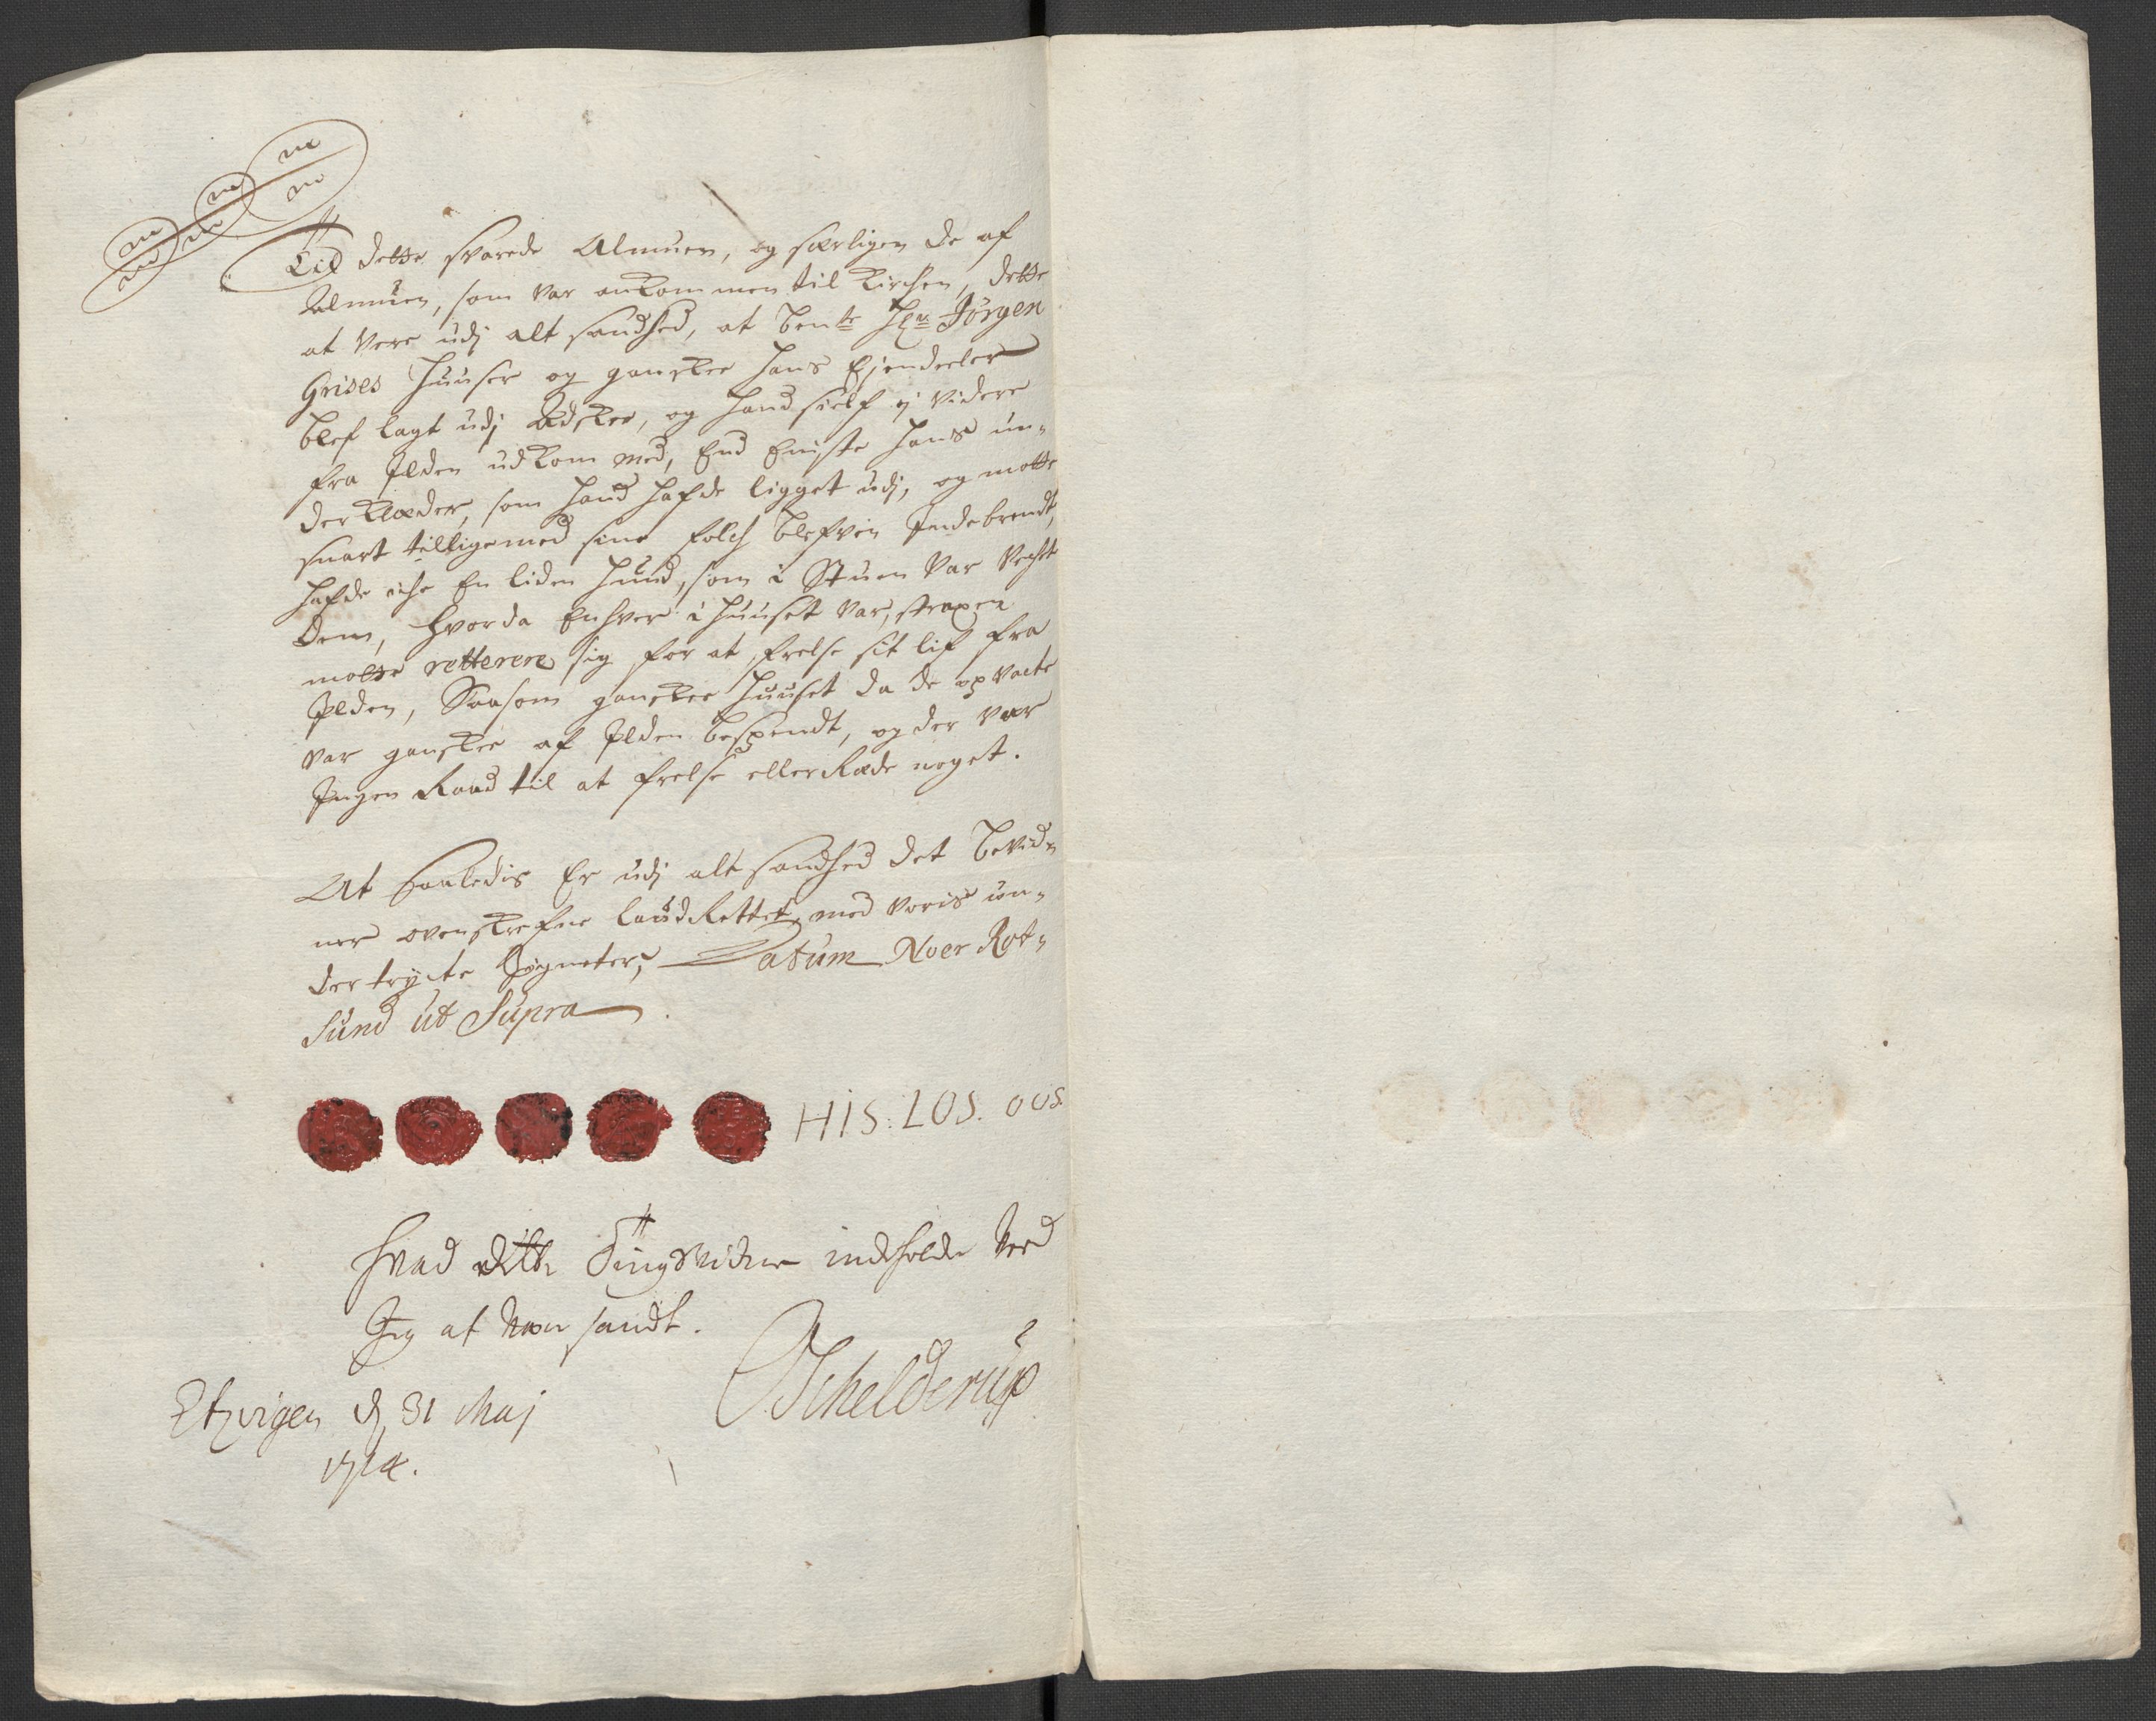 Til dette svarede Almuen, og særligen de af
Almuen, som var ankommen til Kirchen, dette
at Vere udj alt sandhed, at bente Hr Jörgen
Grises Huuser og ganske hans Ejendeeler
blef lagt udj Adske, og hand sielf ej videre
fra Ilden udkom med, End Eniste hans un-
derklæder, som hand hafde ligget udj, og motte
snart tilligemed sine folch blefven Indebrendt,
hafde iche En liden hund, som i Stuen var Vecht
dem, hvorda Enhver i huuset var, straxen
motte retterere sig for at frelse sit lif fra
Ilden, Saasom ganske huuset da de opvacte
var ganske af Ilden bespendt, og der var
Ingen Raad til at frelse eller Rede noget.
At saaledis Er udj alt sandhed det bevid-
ner ovenskrefne laudRettet, med voris un-
dertrycte Signeter, Datum Noer Rot-
sund ut Supra
HIS: LOS. OOS.
Hvad dette Tingsvidne indholder Veed
Jeg at Være sandt.
OSchelderup
d 31 Maj
1714.